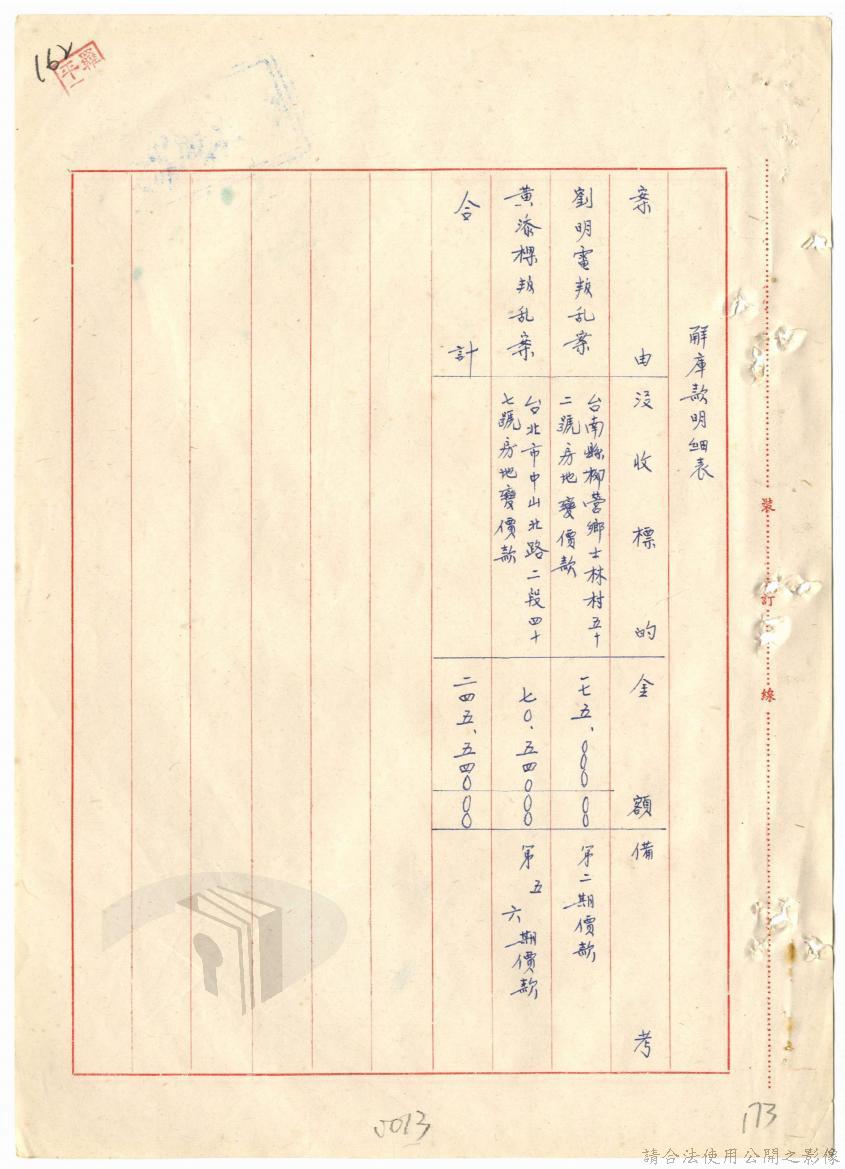 162
羅平一
解庫款明細表
案由 沒收標的 金額 備考
劉明電叛乱案 台南縣柳營鄉士林村五十 一七五、000 00 第二期價款
二號房地變價款
黃添棵叛乱案 台北市中山北路二段四十 七0、五四0 00 第五六期價款
七號房地變價款
合計 二四五、五四0 00
裝訂線
0013
173
請合法使用公開之影像